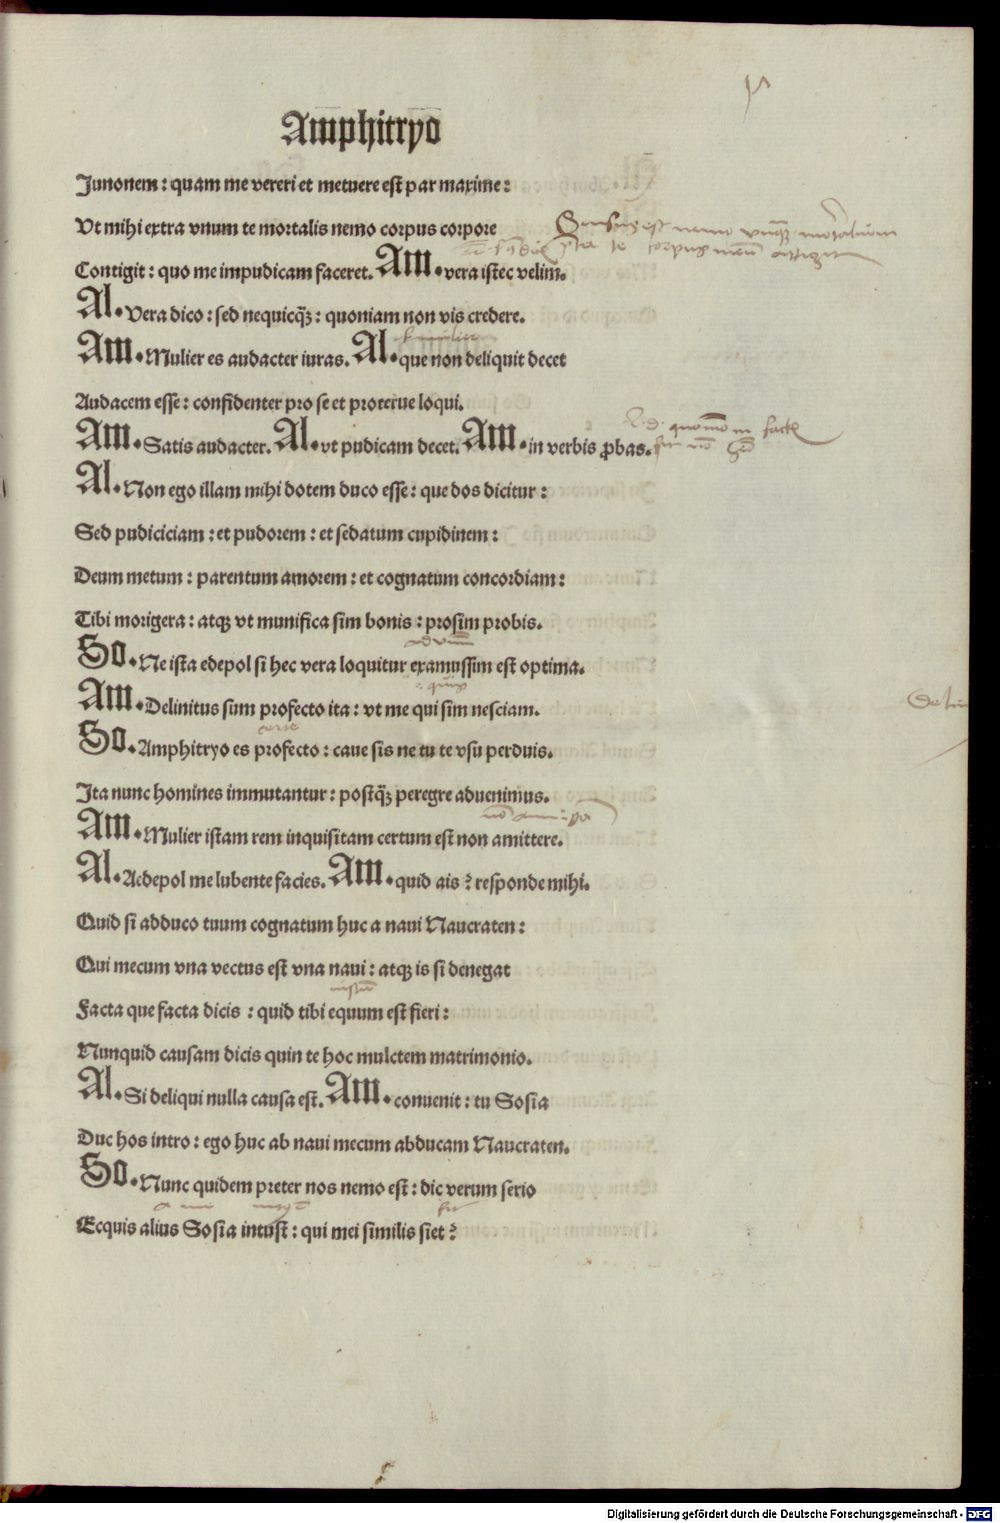 Amphitryo
Junonem : quam me vereri et metuere est par maxime :
Vt mihi extra vnum te mortalis nemo corpus corpore
Sensus est nemo vnquā mortalium
Contigit : quo me impudicam faceret. Am. vera istec velim.
Al. Vera dico : sed nequicq̄ꝫ : quoniam non vis credere.
Am. Mulier es audacter iuras. Al. que non deliquit decet
Audacem esse : confidenter pro se et proterue loqui.
Am. Satis audacter. Al. vt pudicam decet. Am. in verbis ꝓbas.
Al. Non ego illam mihi dotem duco esse : que dos dicitur :
Sed pudiciciam : et pudorem : et sedatum cupidinem :
Deum metum : parentum amorem : et cognatum concordiam :
Tibi morigera : atqꝫ vt munifica sim bonis : prosim probis.
So. Ne ista edepol si hec vera loquitur examussim est optima.
Am. Delinitus sum profecto ita : vt me qui sim nesciam.
So. Amphitryo es profecto : caue sis ne tu te vsu perduis.
Ita nunc homines immutantur : postq̄ꝫ peregre aduenimus.
Am. Mulier istam rem inquisitam certum est non amittere.
Al. Aedepol me lubente facies. Am. quid ais ? responde mihi.
Quid si adduco tuum cognatum huc a naui Naucraten :
Qui mecum vna vectus est vna naui : atqꝫ is si denegat
Facta que facta dicis : quid tibi equum est fieri :
Nunquid causam dicis quin te hoc mulctem matrimonio.
Al. Si deliqui nulla causa est. Am. conuenit : tu Sosia
Duc hos intro : ego huc ab naui mecum abducam Naucraten.
So. Nunc quidem preter nos nemo est : dic verum serio
Ecquis alius Sosia intust : qui mei similis siet ?
Digitalisierung gefördert durch die Deutsche Forschungsgemeinschaft - DFG